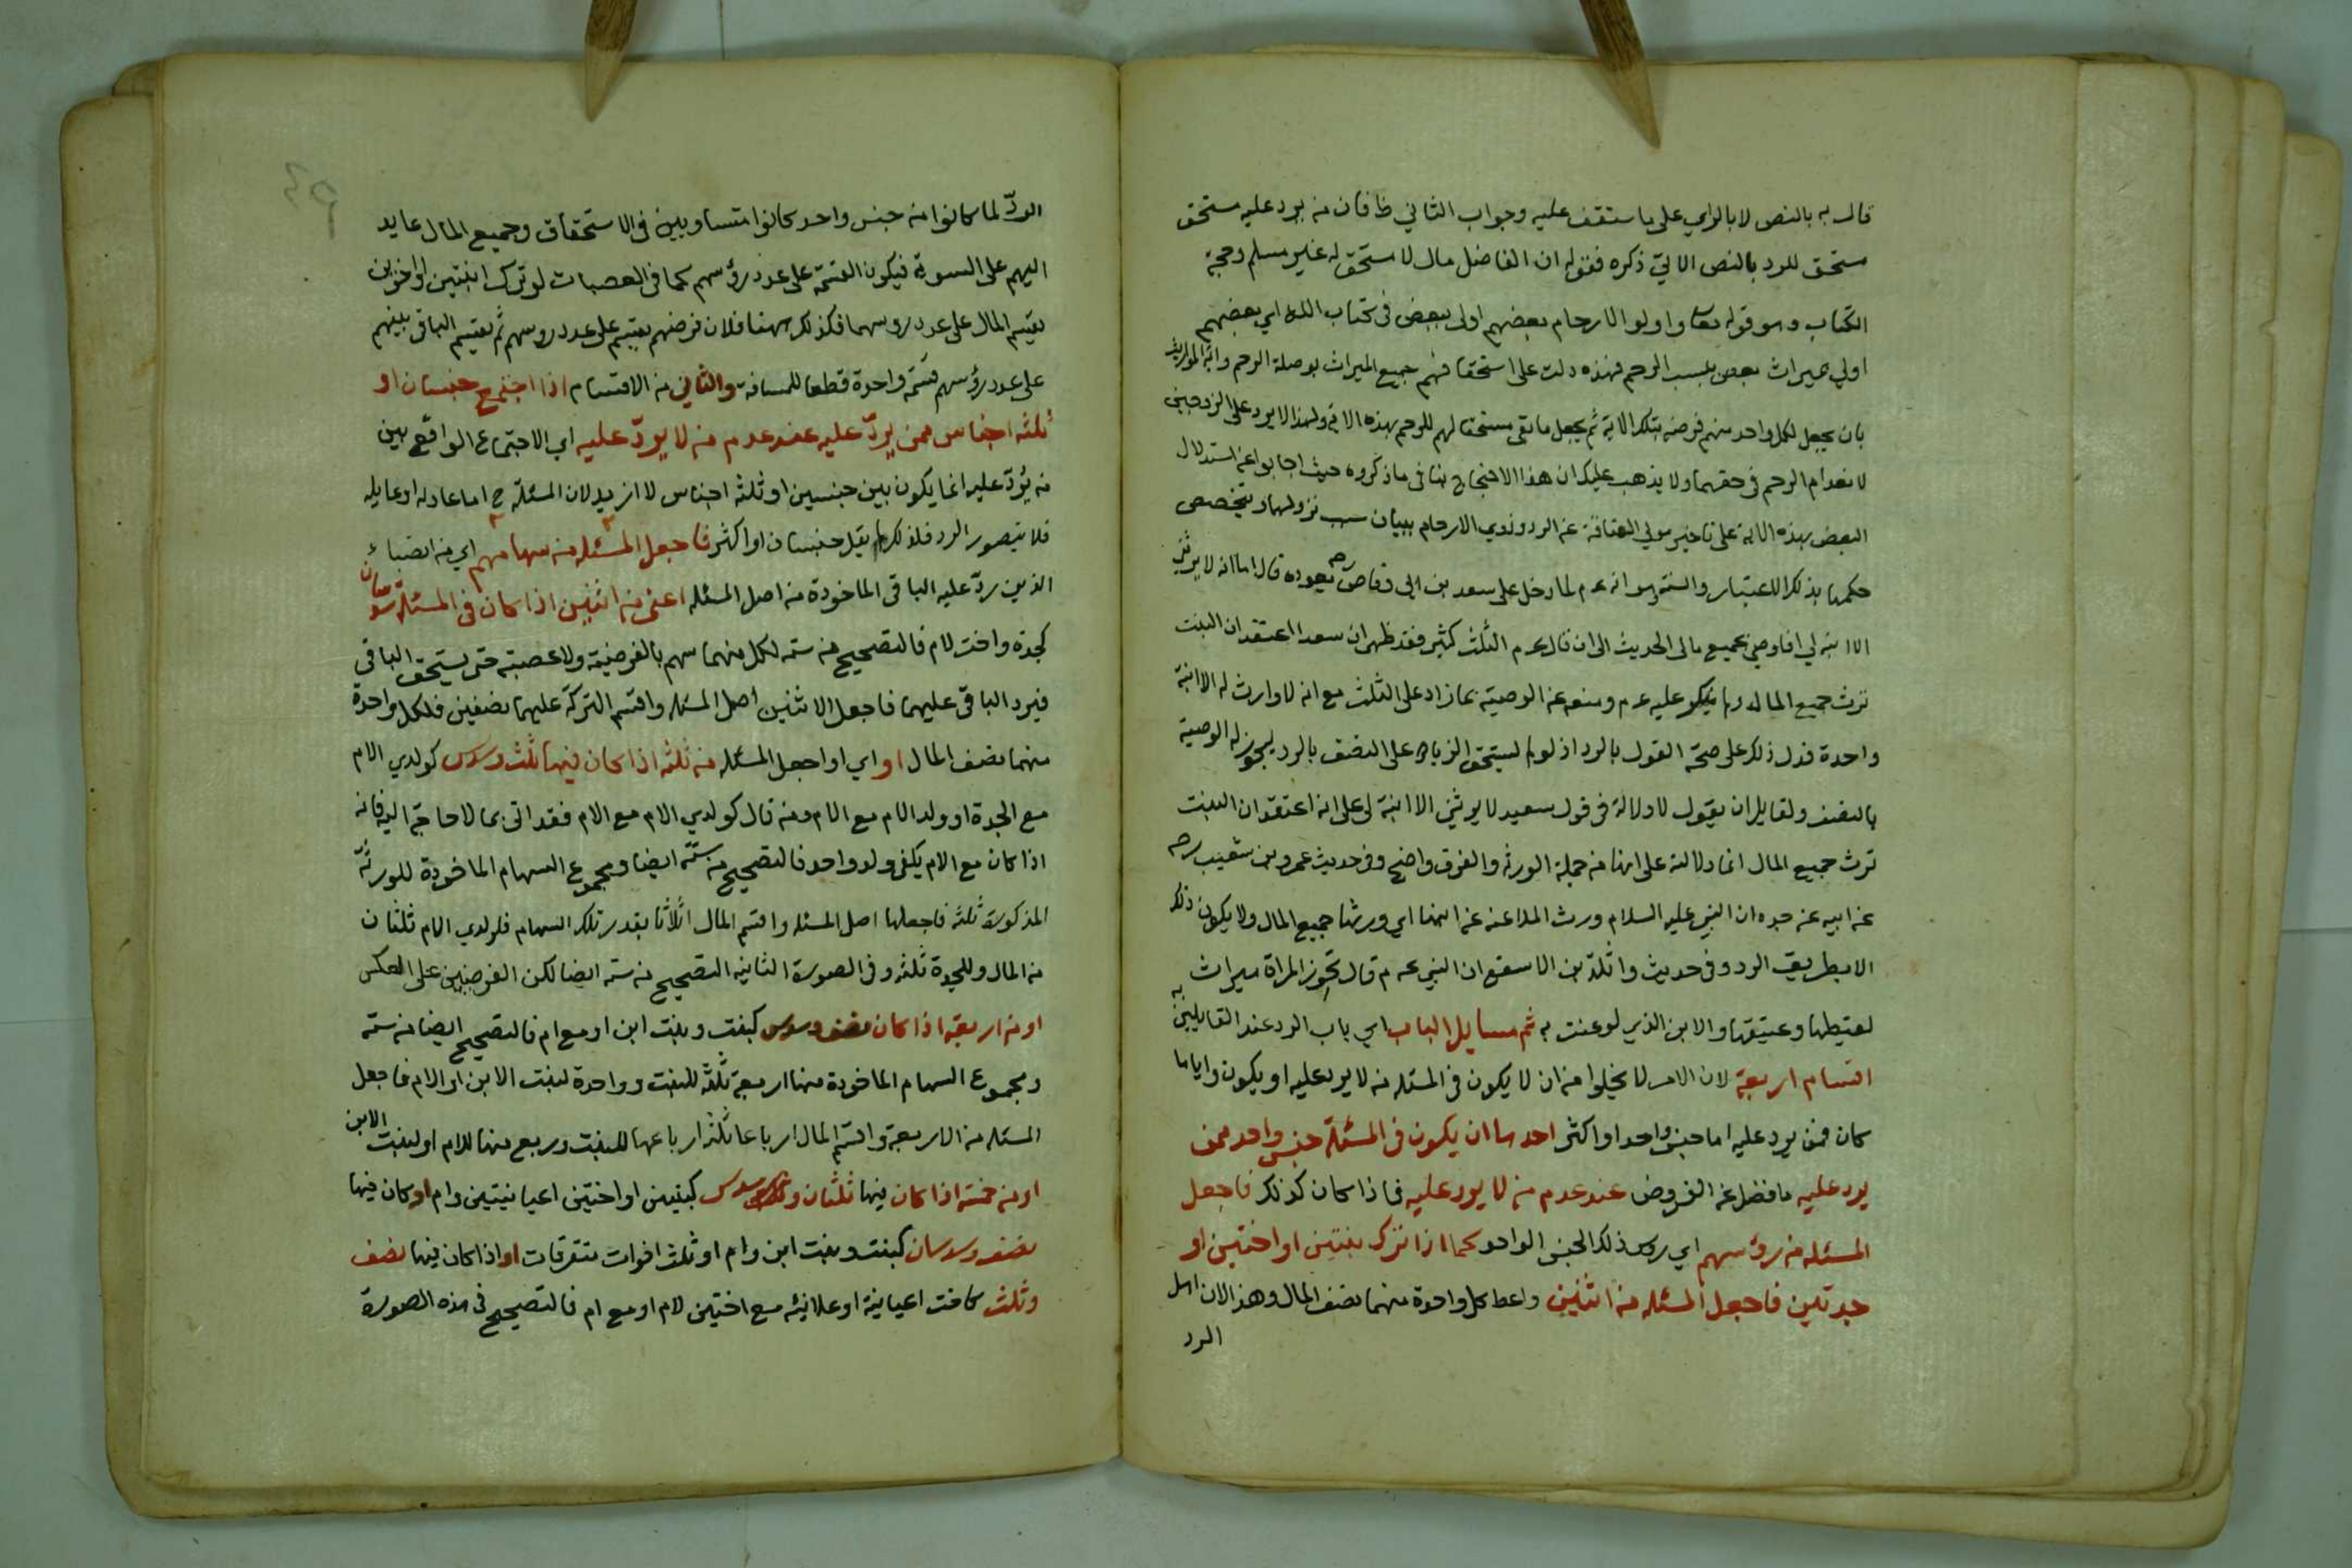 قال به بالنص لا بالراي على ما ستقف عليه وجواب الثاني ظ فان من يرد عليه مستحق
مستحق للرد بالنص الاتي ذكره فقوله ان الفاضل مال لا مستحق له غير مسلم وحجة
الكتاب وهو قوله تعا واولوا الارحام بعضهم اولى ببعض في كتاب الله اي بعضهم
اولي بميراث بعض بسبب الرحم فهذه دلت على استحقاقهم جميع الميراث بوصلة الرحم واية المواريث
بان يجعل لكل واحد منهم فرضه بتلك الاية ثم يجعل ما بقى مستحقا لهم للرحم بهذه الاية ولهذا لا يرد على الزوجين
لانعدام الرحم في حقهما ولا يذهب عليك ان هذا الاحتجاج ينافي ما ذكروه حيث اجابوا عن استدلال
البعض بهذه الاية على تاخير مولى العتاقة عن الرد وذوي الارحام ببيان سبب نزولها وتخصيص
حكمها بذلك الاعتبار والسنة وهو انه عم لما دخل على سعد بن ابي وقاص رحم يعوده قال اما انه لا يرثني
الا ابنة لي افاوصي بجميع مالي الحديث الى ان قال عم الثلث كثير فقد ظهر ان سعدا اعتقد ان البنت
ترث جميع المال ولم ينكر عليه عم ومنعه عن الوصية بما زاد على الثلث مع انه لا وارث له الا ابنة
واحدة فدل ذلك على صحة القول بالرد اذ لو لم يستحق الزيادة على النصف بالرد ليجوز له الوصية
بالنصف ولقايل ان يقول لا دلالة في قول سعيد لا يرثني الا ابنة لي على انه اعتقد ان البنت
ترث جميع المال انما دلالته على انها من جملة الورثه والفرق واضح وفي حديث عمرو بن شعيب رحم
عن ابيه عن جده ان النبي عليه السلام ورث الملاعنه عن ابنها اي ورثها جميع المال ولا يكون ذلك
الا بطريق الرد وفي حديث واثلة بن الاسقع ان النبي عم قال تحوز المراة ميراث
لقيطها وعتيقها والابن الذي لوعنت به ثم مسايل الباب اي باب الرد عند القايلين به
اقسام اربعة لان الامر لا يخلوا من ان لا يكون في المسئله من لا يرد عليه او يكون واياما
كان فمن يرد عليه اما جنس واحد او اكثر احدها ان يكون في المسئلة جنس واحد ممن
يرد عليه ما فضل عن الفروض عند عدم من لا يرد عليه فاذا كان كذلك فاجعل
المسئله من رؤسهم اي روس ذلك الجنس الواحد كما اذا ترك بنتين او اختين او
جدتين فاجعل المسئله من اثنين واعط كل واحدة منهما نصف المال وهذا لان اهل
الرد
الردّ لما كانوا من جنس واحد كانوا متساويين في الاستحقاق وجميع المال عايد
اليهم على السوية فيكون القسمة على عدد رؤسهم كما في العصبات لو ترك ابنتين او اخوين
يقسم المال على عدد روسهما فكذلك ههنا فلان فرضهم يقسم على عدد روسهم ثم يقسم الباقي بينهم
على عدد رؤسهم قسمة واحدة قطعا للمسافة والثاني من الاقسام اذا اجتمع جنسان او
ثلثه اجناس ممن يردّ عليه عند عدم من لا يردّ عليه اي الاجتماع الواقع بين
من يردّ عليه انما يكون بين جنسين او ثلثه اجناس لا ازيد لان المسئلة ح اما عادله او عايله
فلا يتصور الرد فلذلك لم يقل جنسان او اكثر فاجعل المسئله من سهامهم اي من انصباء
الذين ردّ عليه الباقي الماخوذة من اصل المسئله اعني من اثنين اذا كان في المسئلة سدسان
كجدة واخت لام فالتصحيح من سته لكل منهما سهم بالفرضية ولا عصبة حتى يستحق الباقي
فيرد الباقي عليهما فاجعل الاثنين اصل المسئله واقسم التركة عليهما نصفين فلكل واحدة
منهما نصف المال او اي او اجعل المسئله من ثلثه اذا كان فيها ثلث وسدس كولدي الام
مع الجدة او ولد الام مع الام ومن قال كولدي الام مع الام فقد اتى بما لا حاجة اليه فانه
اذا كان مع الام يكفي ولد واحد فالتصحيح من ستة ايضا ومجموع السهام الماخوذة للورثة
المذكورة ثلثه فاجعلها اصل المسئله واقسم المال اثلاثا بقدر تلك السهام فلولدي الام ثلثان
من المال وللجدة ثلثه وفي الصورة الثانيه التصحيح من سته ايضا لكن الفرضين على العكس
او من اربعة اذا كان نصف وسدس كبنت وبنت ابن او مع ام فالتصحيح ايضا من سته
ومجموع السهام الماخوذة منها اربعة ثلثه للبنت وواحدة لبنت الابن او الام فاجعل
المسئله من الاربعة واقسم المال ارباعا ثلثه ارباعها للبنت وربع منها للام او لبنت الابن
او من خمسة اذا كان فيها ثلثان وسدس كبنتين او اختين اعيانيتين وام او كان فيها
نصف وسدسان كبنت وبنت ابن وام او ثلث اخوات متفرقات او اذا كان فيها نصف
وثلث كاخت اعيانية او علانية مع اختين لام او مع ام فالتصحيح في هذه الصورة